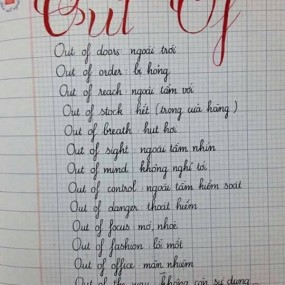 Out Of
Out of doors ngoài trời
Out of order bị hỏng
Out of reach ngoài tầm với
Out of stock hết (trong cửa hàng)
Out of breath hụt hơi
Out of sight ngoài tầm nhìn
Out of mind không nghĩ tới
Out of control ngoài tầm kiểm soát
Out of danger thoát hiểm
Out of focus mờ, nhòe
Out of fashion lỗi mốt
Out of office mãn nhiệm
Out of the way không còn sử dụng